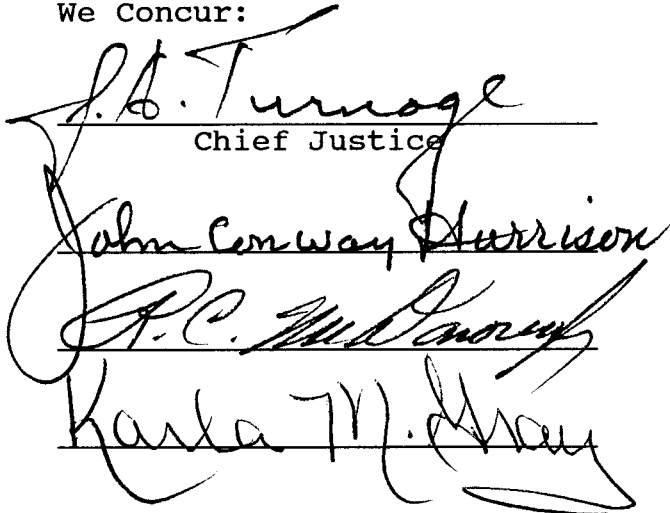 We Concur:
J. A. Turnage
Chief Justice
John Conway Harrison
R. C. McDonough
Karla M. Gray